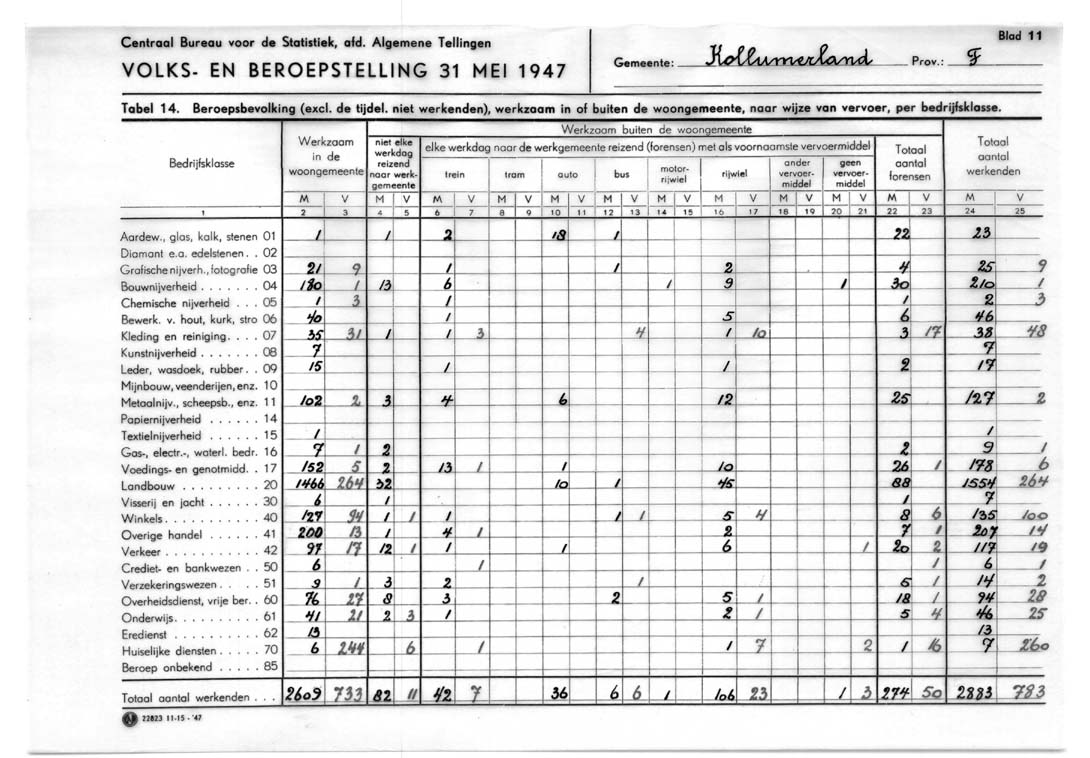 Centraal Bureau voor de Statistiek, afd. Algemene Tellingen
VOLKS- EN BEROEPSTELLING 31 MEI 1947
Gemeente: Kollumerland Prov.: F
Blad 11
Tabel 14. Beroepsbevolking (excl. de tijdel. niet werkenden), werkzaam in of buiten de woongemeente, naar wijze van vervoer, per bedrijfsklasse.
Bedrijfsklasse
Werkzaam in de woongemeente
Werkzaam buiten de woongemeente
niet elke werkdag reizend naar werkgemeente
elke werkdag naar de werkgemeente reizend (forensen) met als voornaamste vervoermiddel
trein tram auto bus motor-rijwiel rijwiel ander vervoer-middel geen vervoer-middel
Totaal aantal forensen
Totaal aantal werkenden
M V M V M V M V M V M V M V M V M V M V M V M V
1 2 3 4 5 6 7 8 9 10 11 12 13 14 15 16 17 18 19 20 21 22 23 24 25
Aardew., glas, kalk, stenen 01 1 1 2 18 1 22 23
Diamant e.a. edelstenen . . 02
Grafische nijverh., fotografie 03 21 9 1 1 2 4 25 9
Bouwnijverheid . . . . . . . 04 180 1 13 6 1 9 1 30 210 1
Chemische nijverheid . . . 05 1 3 1 1 2 3
Bewerk. v. hout, kurk, stro 06 40 1 5 6 46
Kleding en reiniging. . . . 07 35 31 1 1 3 4 1 10 3 17 38 48
Kunstnijverheid . . . . . . . 08 7 7
Leder, wasdoek, rubber. . 09 15 1 1 2 17
Mijnbouw, veenderijen, enz. 10
Metaalnijv., scheepsb., enz. 11 102 2 3 4 6 12 25 127 2
Papiernijverheid . . . . . . 14
Textielnijverheid . . . . . . 15 1 1
Gas-, electr.-, waterl. bedr. 16 7 1 2 2 9 1
Voedings- en genotmidd. . 17 152 5 2 13 1 1 10 26 1 178 6
Landbouw . . . . . . . . . 20 1466 264 32 10 1 45 88 1554 264
Visserij en jacht . . . . . . 30 6 1 1 7
Winkels . . . . . . . . . . . 40 127 94 1 1 1 1 1 5 4 8 6 135 100
Overige handel . . . . . . 41 200 13 1 4 1 2 7 1 207 14
Verkeer . . . . . . . . . . . 42 97 17 12 1 1 1 6 1 20 2 117 19
Crediet- en bankwezen . . 50 6 1 1 6 1
Verzekeringswezen. . . . . 51 9 1 3 2 1 5 1 14 2
Overheidsdienst, vrije ber. . 60 76 27 8 3 2 5 1 18 1 94 28
Onderwijs. . . . . . . . . . 61 41 21 2 3 1 2 1 5 4 46 25
Eredienst . . . . . . . . . . 62 13 13
Huiselijke diensten . . . . . 70 6 244 6 1 1 7 2 1 16 7 260
Beroep onbekend . . . . . 85
Totaal aantal werkenden . . . 2609 733 82 11 42 7 36 6 6 1 106 23 1 3 274 50 2883 783
22823 11-15 - '47